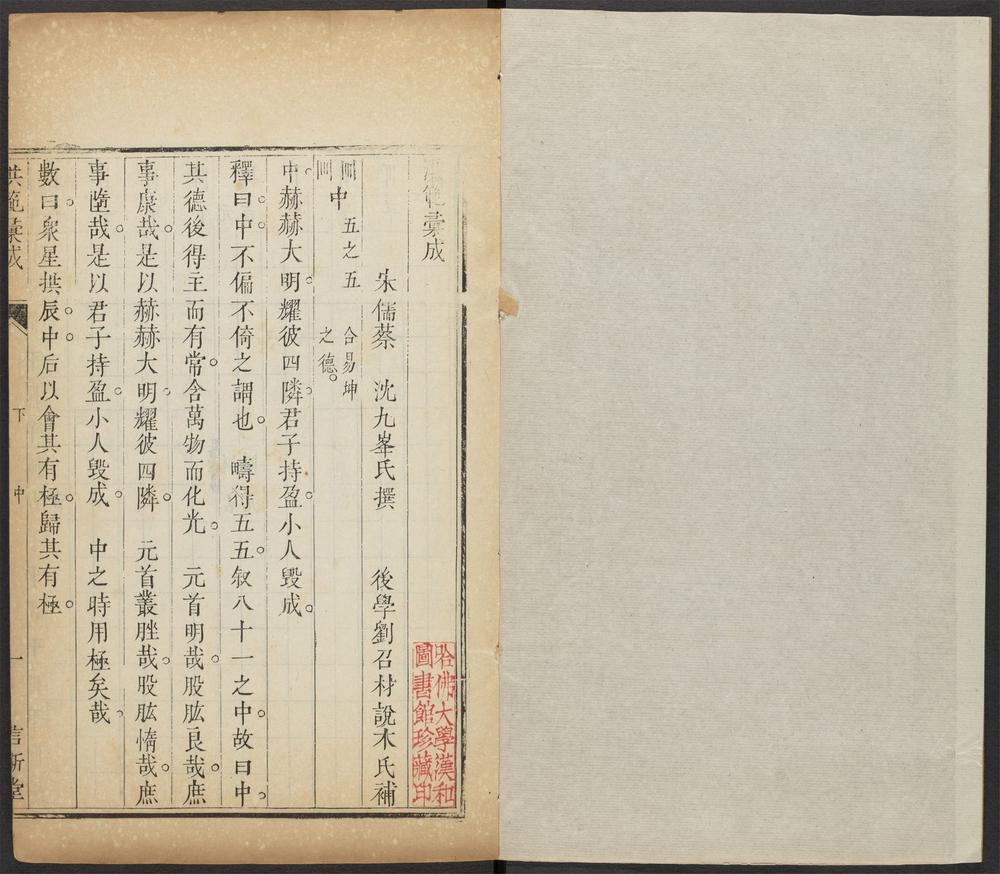 洪範彙成
宋儒蔡 沈九峯氏撰 後學劉召材說木氏補
中 五之五 合易坤之德
中赫赫大明耀彼四隣君子持盈小人毀成
釋曰中不偏不倚之謂也 疇得五五叙八十一之中故曰中
其德後得主而有常含萬物而化光 元首明哉股肱良哉庶
事康哉是以赫赫大明耀彼四隣 元首叢脞哉股肱惰哉庶
事墮哉是以君子持盈小人毀成 中之時用極矣哉
數曰衆星拱辰中后以會其有極歸其有極
洪範彙成 下 中 一
哈佛大學漢和
圖書館珍藏印